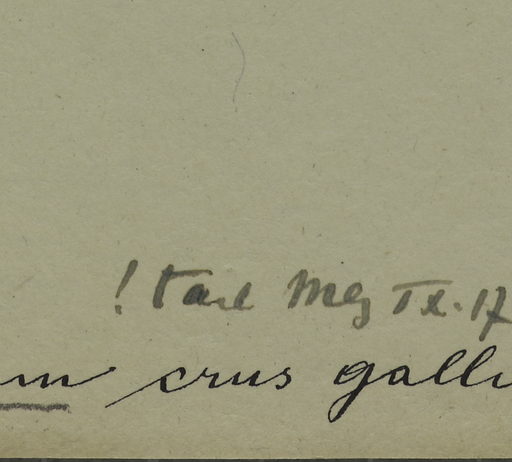 ! Carl Mez IX. 17
m crus galli